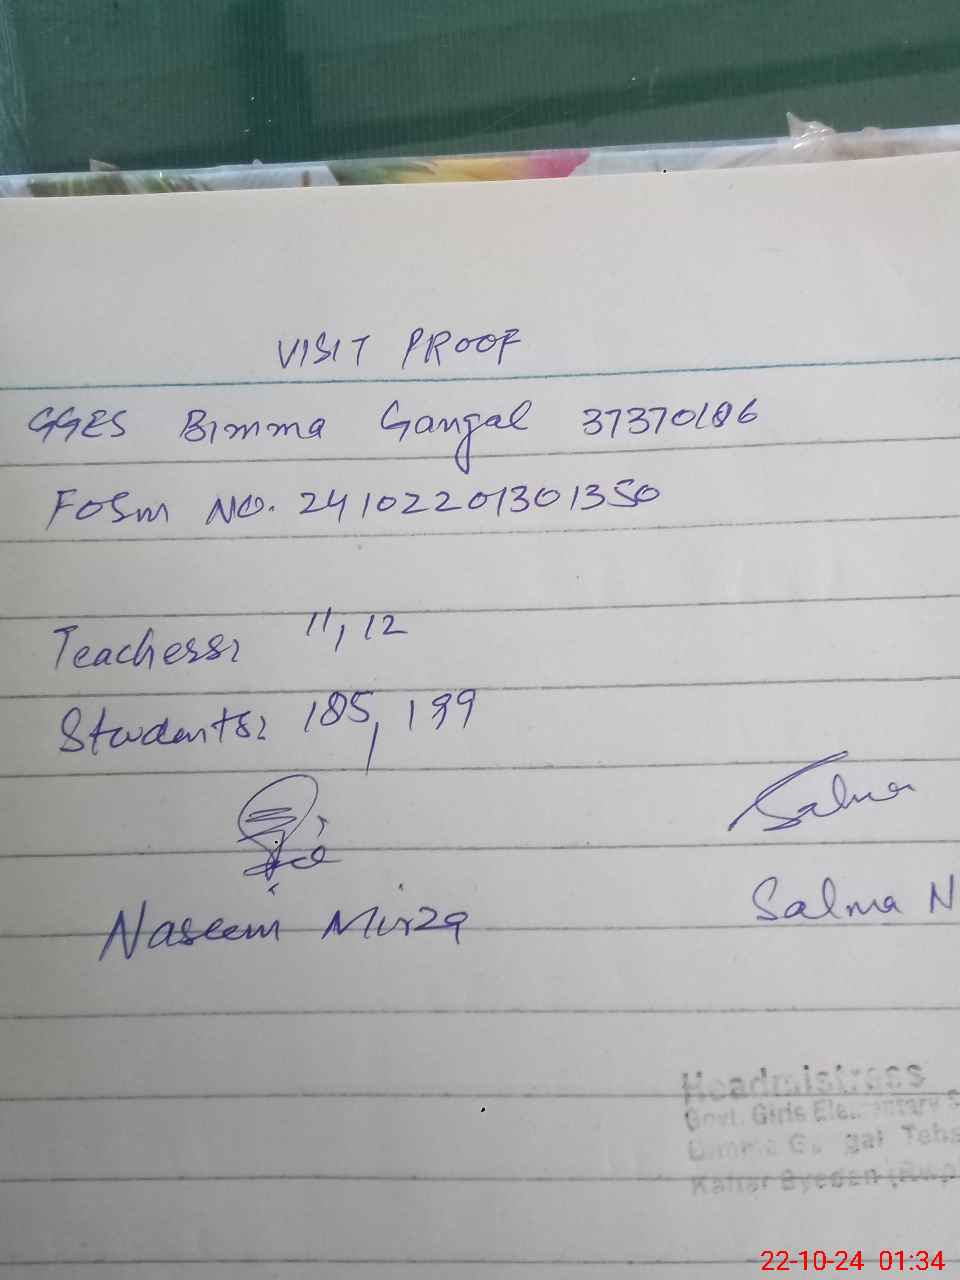 VISIT PROOF
GGES Bimma Gangal 37370186
Form NO. 24102201301350
Teachers: 11, 12
Students: 185, 199
Salma
Naseem Mirza
Salma N
Headmistress
Govt. Girls Elementary S
Bimma Gangal Tehs
Kallar Syedan (Rwp
22-10-24 01:34